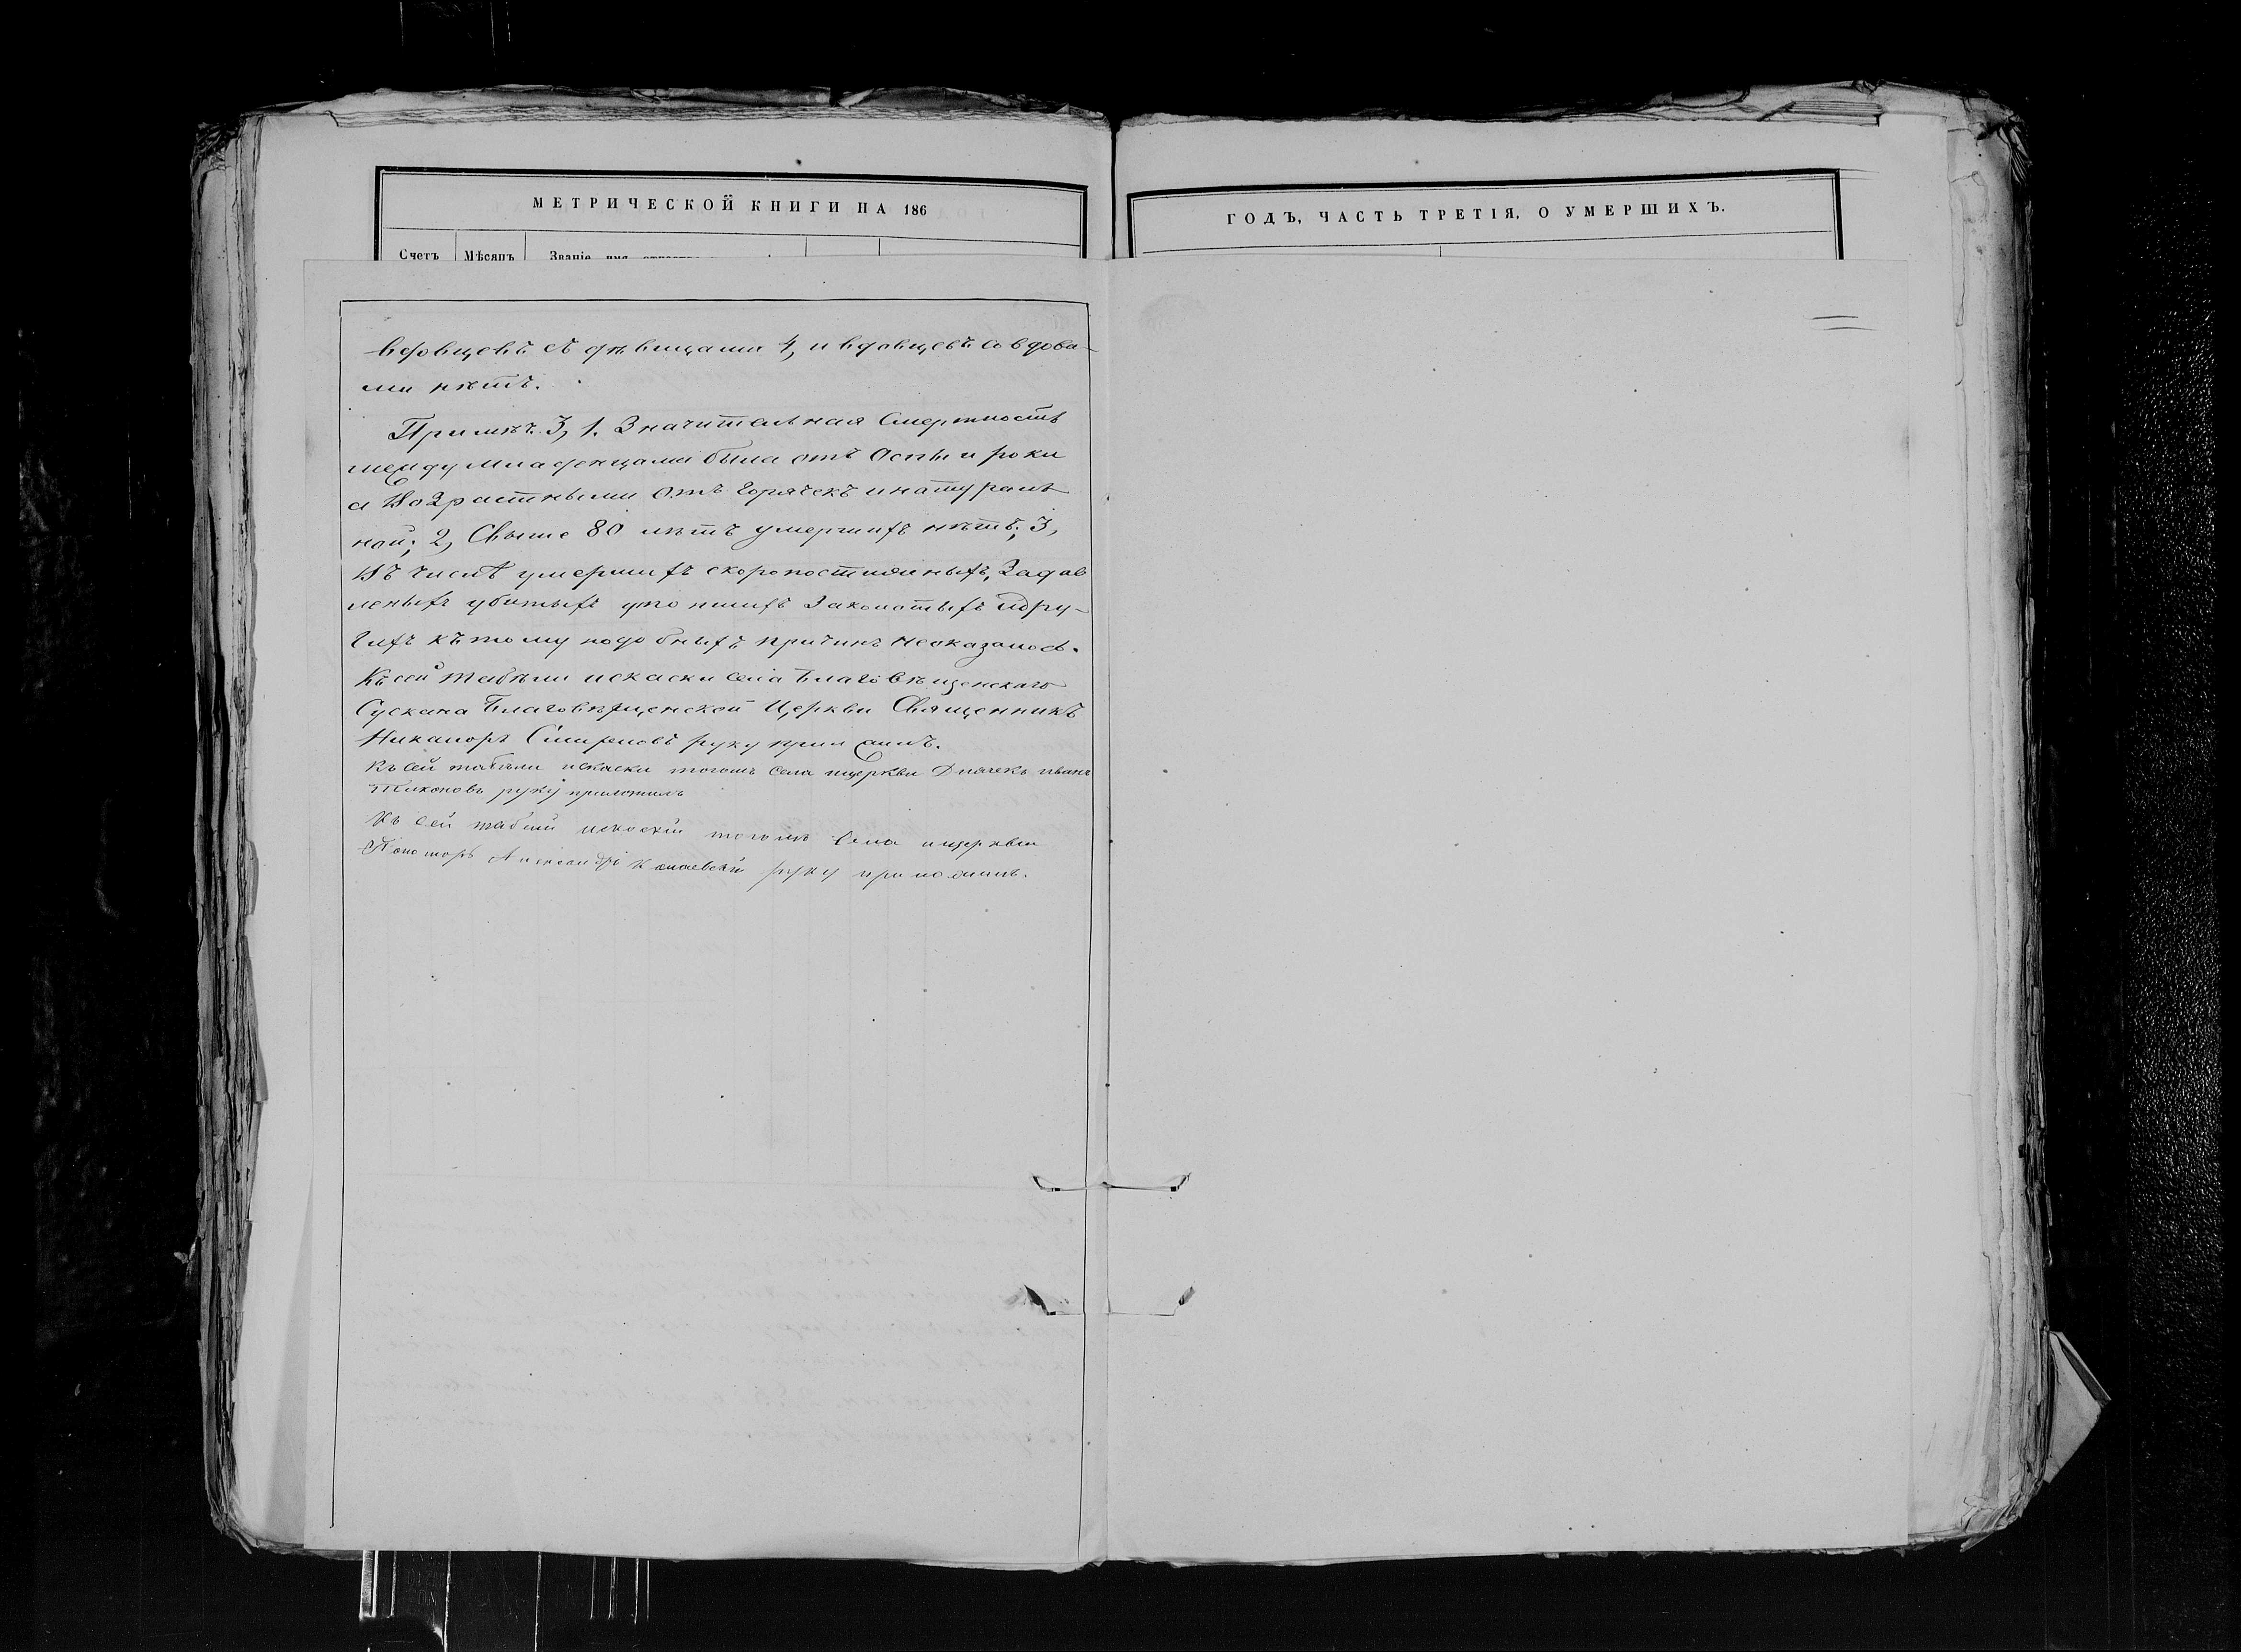 МЕТРИЧЕСКОЙ КНИГИ НА 186
ГОДЪ, ЧАСТЬ ТРЕТІЯ, О УМЕРШИХЪ.
Счетъ Мѣсяцъ Званіе, имя, отчество
вдовцевъ съ дѣвицами 4, и вдовцевъ со вдова-
ми нѣтъ.
Примѣч. 3, 1. Значительная Смертность
между младенцами была отъ Оспы и
а Возрастными отъ Горячекъ и натураль
ной; 2, Свыше 80 лѣтъ умершихъ нѣтъ; 3,
Въ числѣ умершихъ скоропостижныхъ, Задав
леныхъ убитыхъ утопшихъ Идру-
гихъ къ тому подобныхъ причинъ неоказалось.
Къ сей табели искаски села Благовѣщенскаго
Сускана Благовѣщенской Церкви Священникъ
Никаноръ Смирновъ руку приложилъ.
Къ сей табели искаски тогожъ села ицеркви Дьячекъ иванъ
Тихоновъ руку приложилъ
Къ сей табели искаски тогожъ села ицеркви
Пономарь Александръ руку приложилъ.